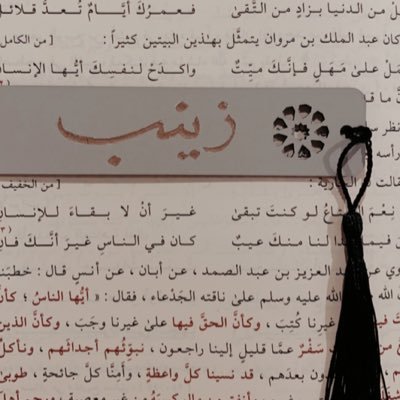 ل من الدنيا بزادٍ من التُّقىٰ فعمركَ أيَّامٌ تُعدَّ قلائل
كان عبد الملك بن مروان يتمثَّل بهذين البيتين كثيراً : [ من الكامل
مَلْ علىٰ مَهَلٍ فإنَّكَ ميِّتٌ واكدَحْ لنفسِكَ أيُّها الإنسان
زينب
نِعْمَ لو كنتَ تبقىٰ غيرَ أنْ لا بقاءَ للإنسانِ
لنا منكَ عيبٌ كان في الناسِ غيرَ أنَّكَ فانِ
عبد العزيز بن عبد الصمد ، عن أبان ، عن أنس قال : خطبَنا
الله عليه وسلم علىٰ ناقته الجَدْعاء ، فقال : « أيُّها الناسُ ؛ كأنَّ
غيرِنا كُتِبَ ، وكأنَّ الحقَّ فيها علىٰ غيرنا وجَبَ ، وكأنَّ الذين
سَفْرٌ عمَّا قليلٍ إلينا راجعون ، نبوِّئُهم أجداثَهم ، ونأكلُ
بعدَهم ، قد نسينا كلَّ واعظةٍ ، وأمِنَّا كلَّ جائحةٍ ، طوبىٰ